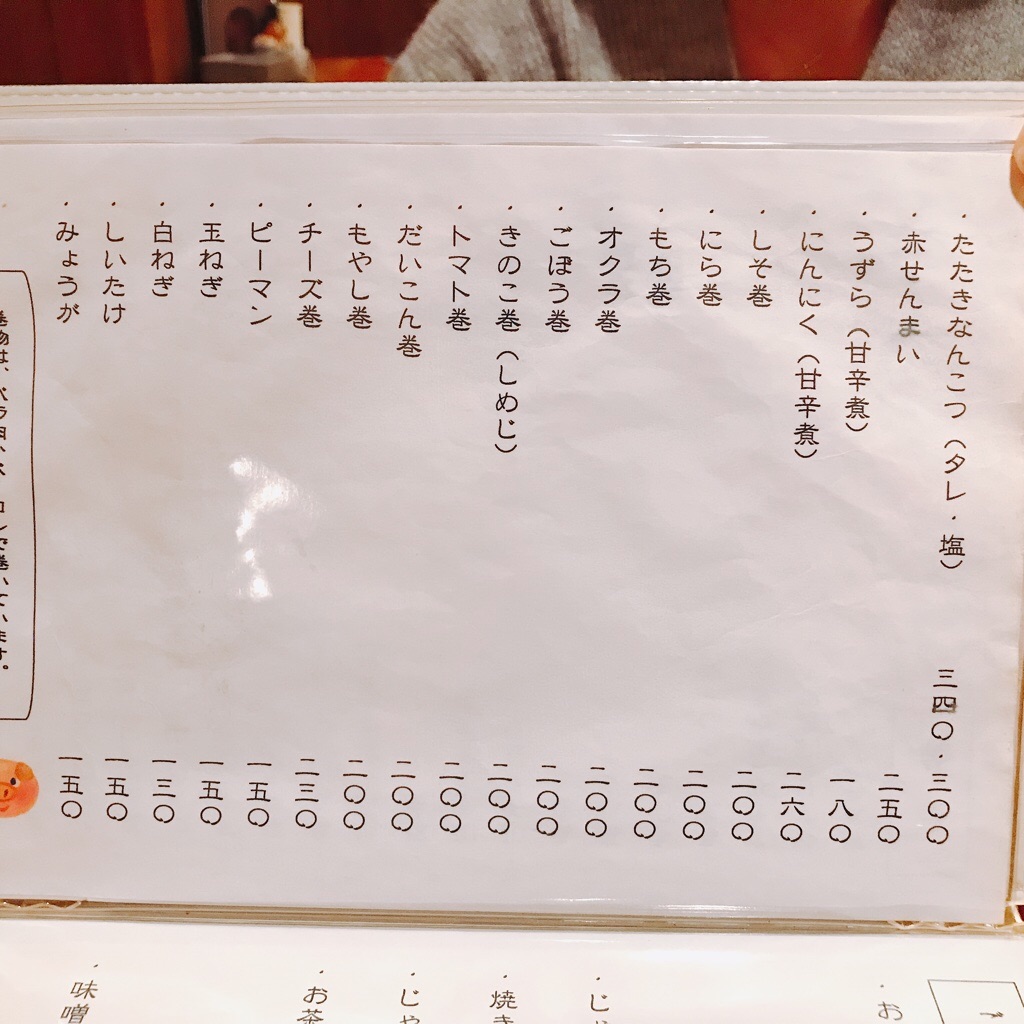 ・たたきなんこつ（タレ・塩） 三四〇・三〇〇
・赤せんまい 二五〇
・うずら（甘辛煮） 一八〇
・にんにく（甘辛煮） 二六〇
・しそ巻 二〇〇
・にら巻 二〇〇
・もち巻 二〇〇
・オクラ巻 二〇〇
・ごぼう巻 二〇〇
・きのこ巻（しめじ） 二〇〇
・トマト巻 二〇〇
・だいこん巻 二〇〇
・もやし巻 二〇〇
・チーズ巻 二三〇
・ピーマン 一五〇
・玉ねぎ 一五〇
・白ねぎ 一三〇
・しいたけ 一五〇
・みょうが 一五〇
巻物は、バラ肉かベーコンで巻いています。
・お
・じゃ
・焼き
・じゃ
・お茶
・味噌